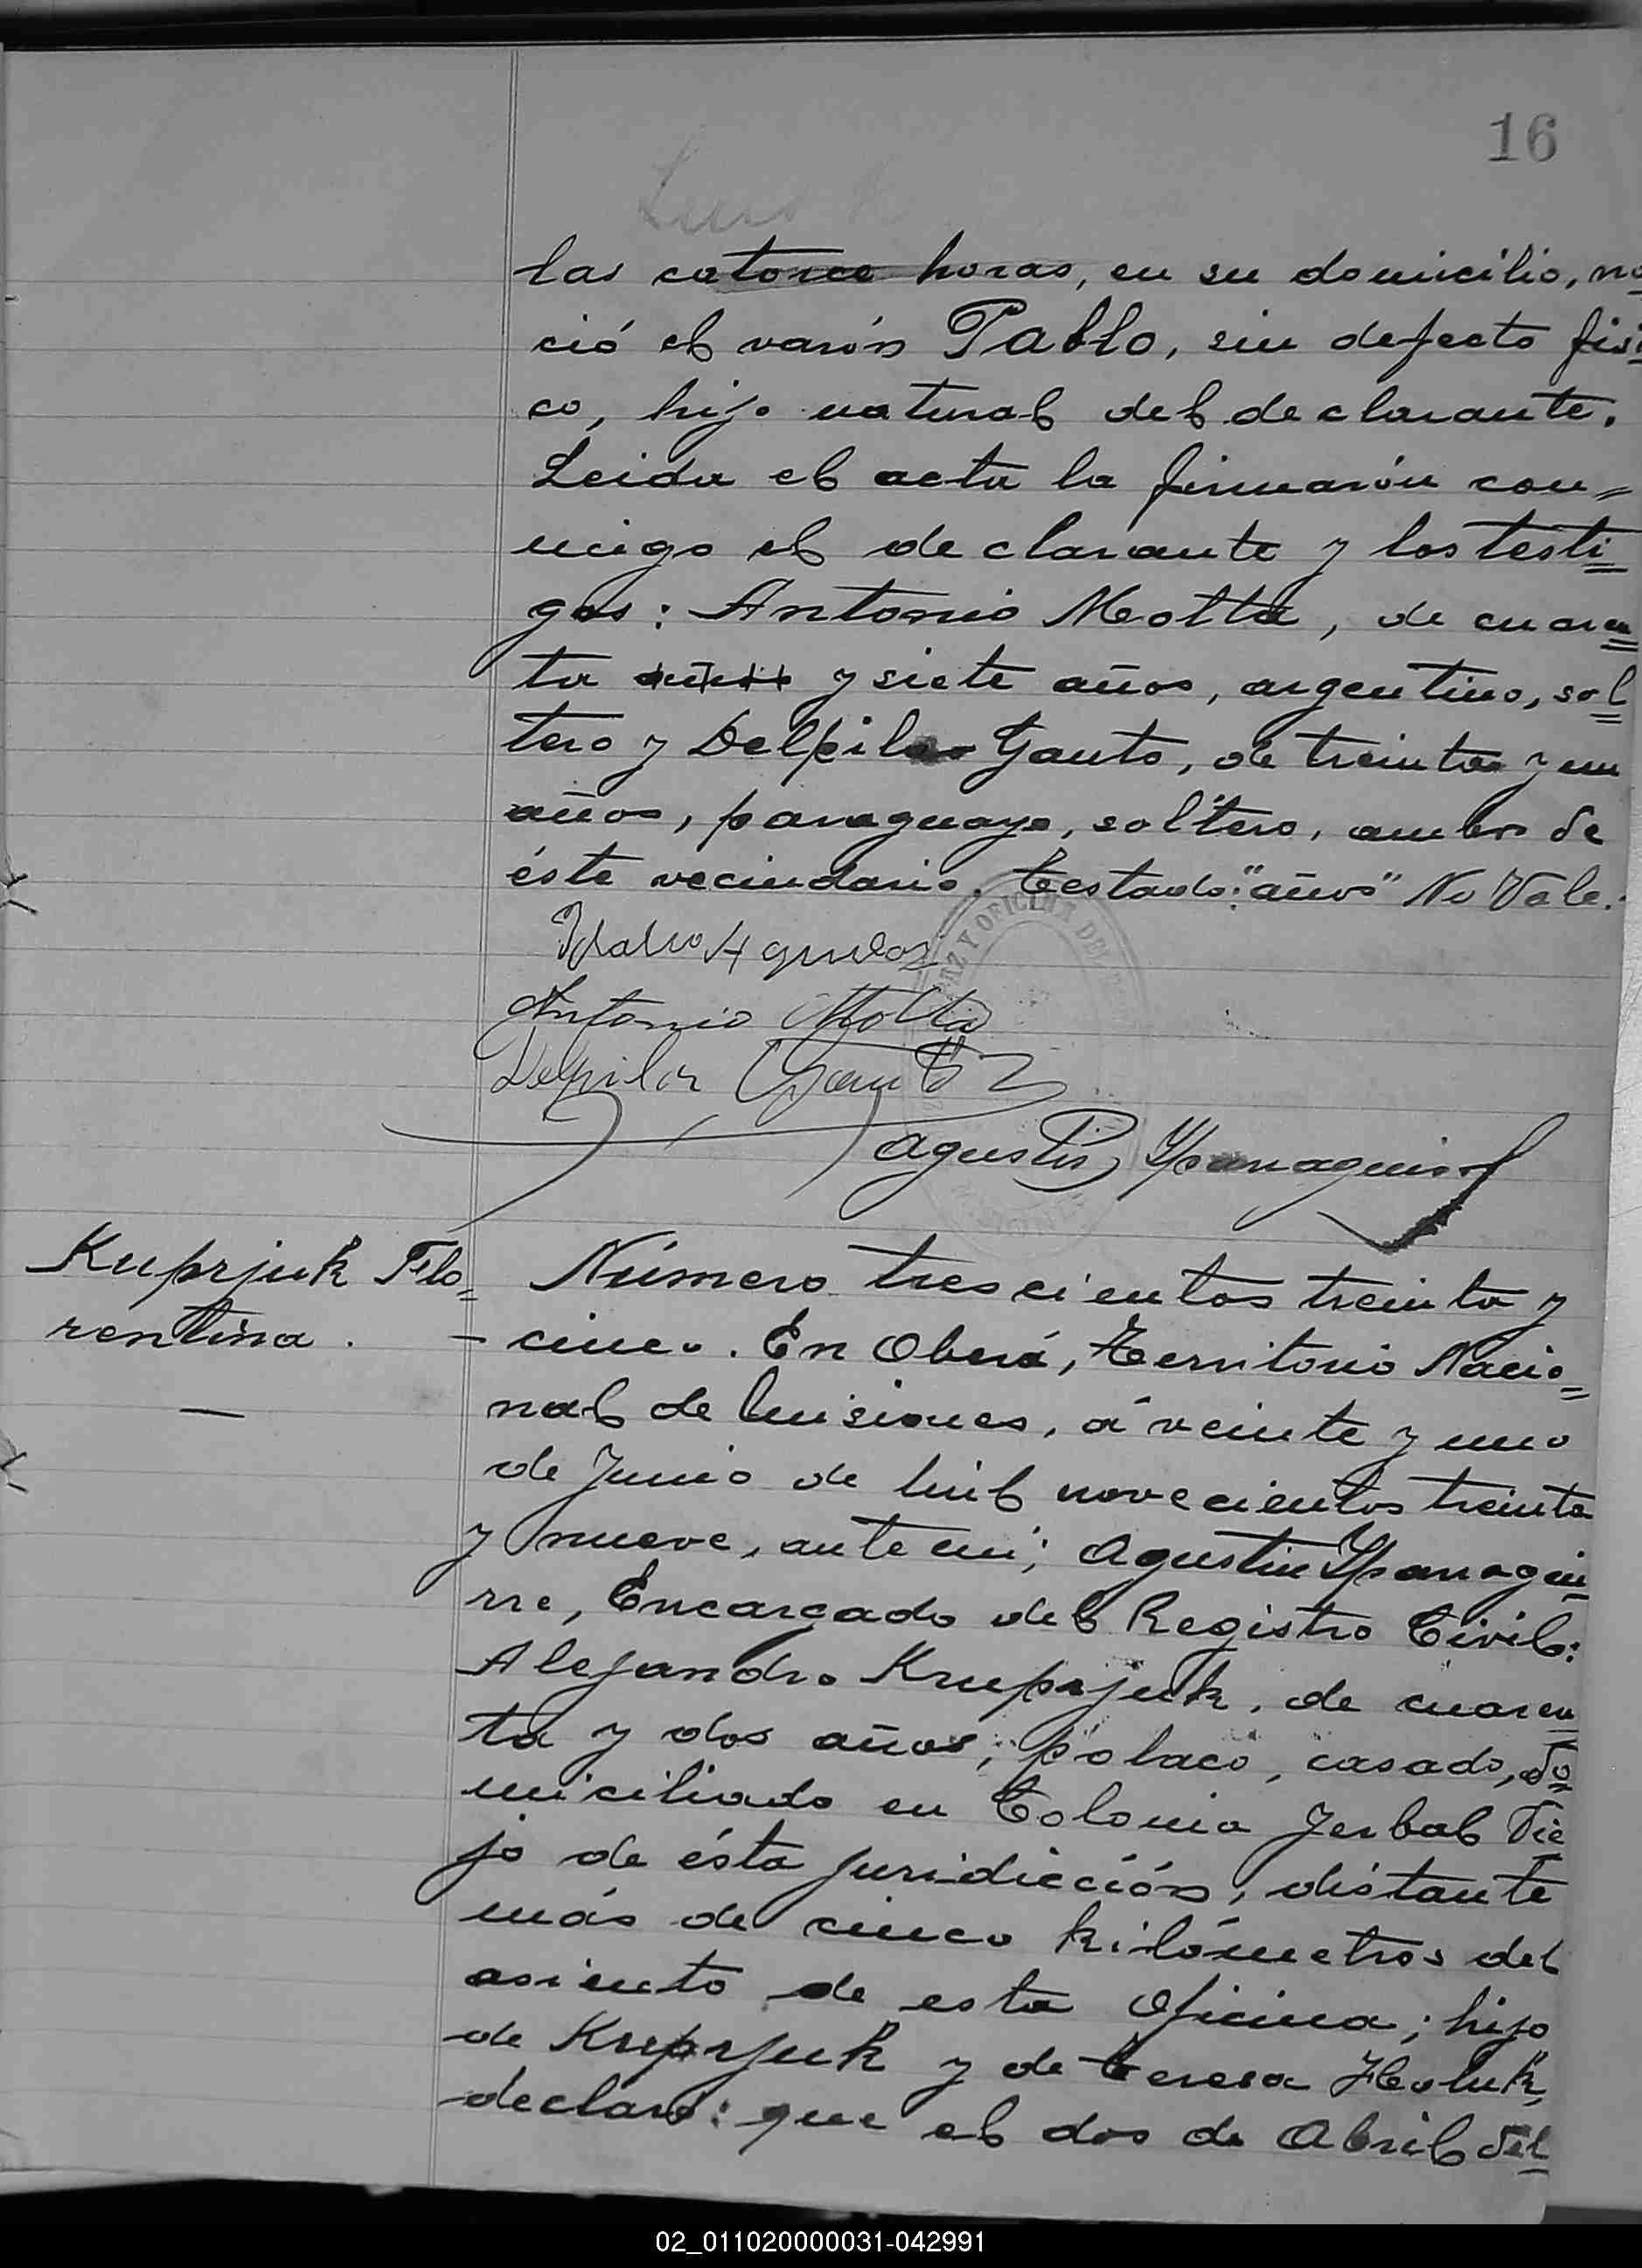 16
las catorce horas, en su domicilio, na
ció el varón Pablo, sin defecto fisi
co, hijo natural del declarante.
Leida el acta la firmarón con=
migo el declarante y los testi
gos: Antonio Motta, de cuaren
ta años y siete años, argentino, sol
tero y Delpilar Gauto, de treinta y un
años, paraguayo, soltero, ambos de
éste vecindario. Testado: "años" No Vale.
Antonio Motta
Delpilar Gauto
Agustin Yparraguirre
Kuprjuk Flo=
rentina.
Número trescientos treinta y
cinco. En Oberá, Territorio Nacio=
nal de Misiones, á veinte y uno
de Junio de mil novecientos treinta
y nueve, ante mi; Agustin Yparragui
rre, Encargado del Registro Civil:
Alejandro Kruprjuk, de cuaren
ta y dos años, polaco, casado, do
miciliado en Colonia Yerbal Vie
jo de ésta juridicción, distante
más de cinco kilómetros del
asiento de esta Oficina; hijo
de Kuprjuk y de Teresa
declaró: que el dos de Abril del
02_011020000031-042991